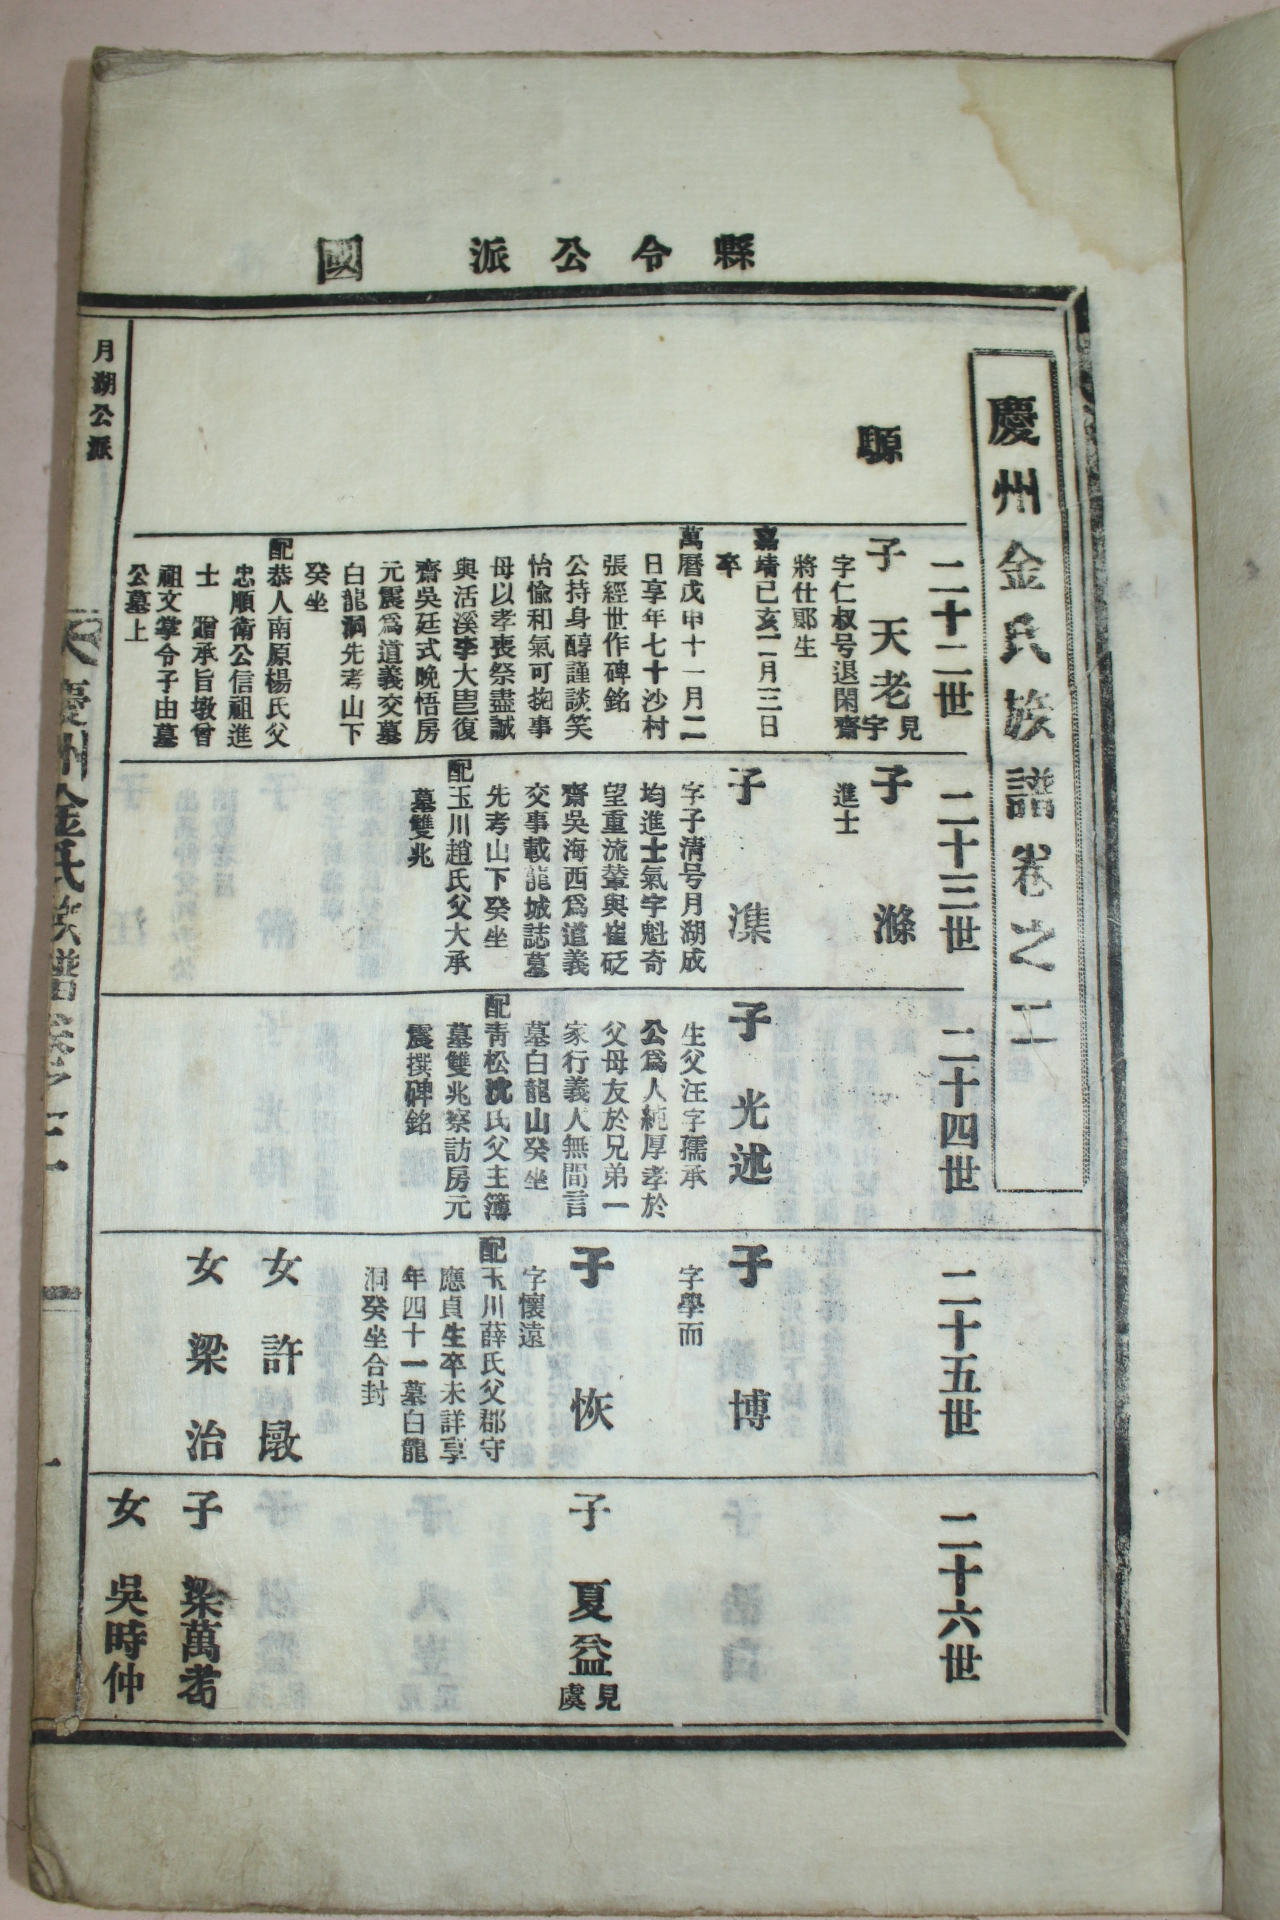 縣令公派 國
慶州金氏族譜卷之二
二十二世
騵
子 天老 見宇
字仁叔号退閑齋
將仕郞生
嘉靖己亥二月三日
卒
萬曆戊申十一月二
日享年七十沙村
張經世作碑銘
公持身醇謹談笑
怡愉和氣可掬事
母以孝喪祭盡誠
與活溪李大㽕復
齋吳廷式晩悟房
元震爲道義交墓
白龍洞先考山下
癸坐
配恭人南原楊氏父
忠順衛公信祖進
士 贈承旨墩曾
祖文掌令子由墓
公墓上
二十三世
子 滌
進士
子 潗
字子淸号月湖成
均進士氣宇魁奇
望重流輩與崔砭
齋吳海西爲道義
交事載龍城誌墓
先考山下癸坐
配玉川趙氏父大承
墓雙兆
二十四世
子 光述
生父汪字孺承
公爲人純厚孝於
父母友於兄弟一
家行義人無間言
墓白龍山癸坐
配靑松沈氏父主簿
墓雙兆察訪房元
震撰碑銘
二十五世
子 博
字學而
子 恢
字懷遠
配玉川薛氏父郡守
應貞生卒未詳享
年四十一墓白龍
洞癸坐合封
女 許墩
女 梁治
二十六世
子 夏益 見虞
子 梁萬耉
女 吳時仲
月湖公派
慶州金氏族譜卷之二
一